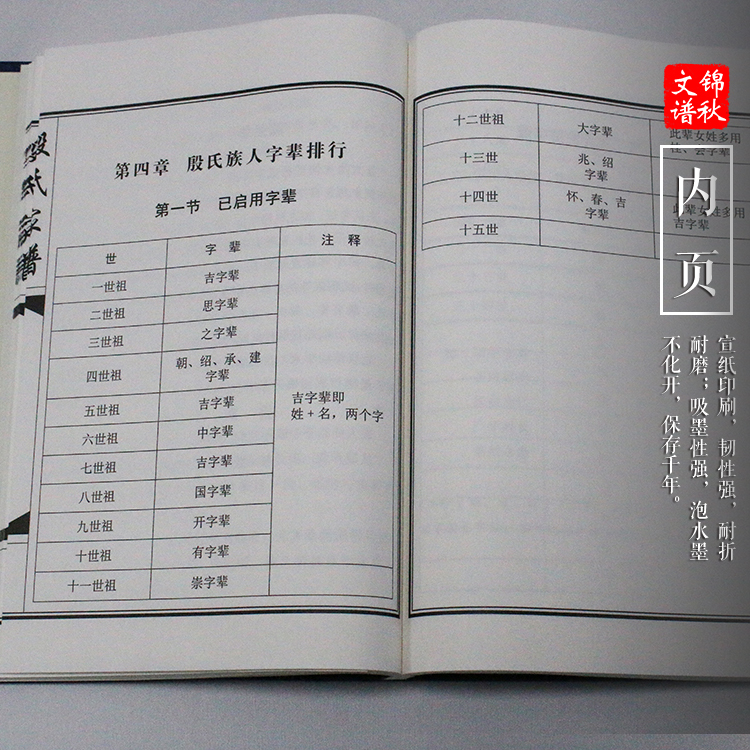 殷氏家谱
第四章 殷氏族人字辈排行
第一节 已启用字辈
世 字 辈 注 释
一世祖 吉字辈
二世祖 思字辈
三世祖 之字辈
四世祖 朝、绍、承、建
字辈
五世祖 吉字辈
六世祖 中字辈
七世祖 吉字辈
八世祖 国字辈
九世祖 开字辈
十世祖 有字辈
十一世祖 崇字辈
吉字辈即
姓+名,两个字
十二世祖 大字辈 此辈女姓多用
桂、芸字辈
十三世 兆、绍
字辈
十四世 怀、春、吉
字辈 此辈女姓多用
吉字辈
十五世
锦秋
文谱
内页
宣纸印刷,韧性强,耐折
耐磨;吸墨性强,泡水墨
不化开,保存千年。